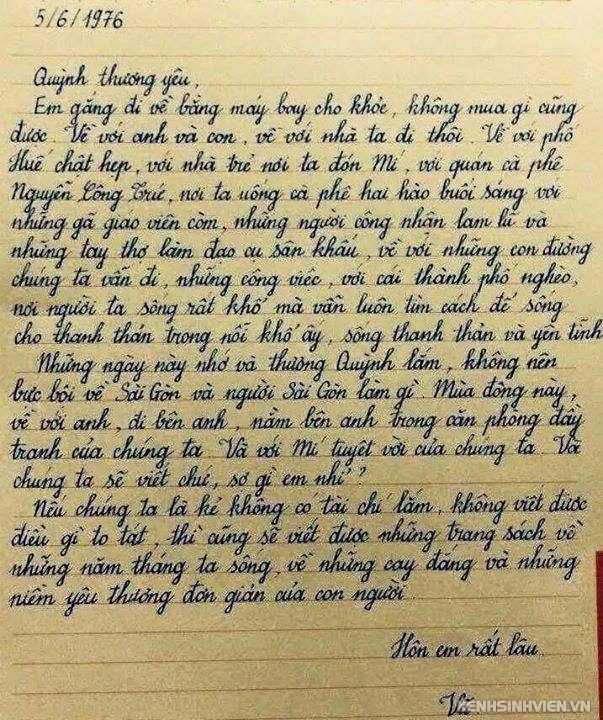 5/6/1976
Quỳnh thương yêu,
Em gắng đi về bằng máy bay cho khỏe, không mua gì cũng
được. Về với anh và con, về với nhà ta đi thôi. Về với phố
Huế chật hẹp, với nhà trẻ nơi ta đón Mí, với quán cà phê
Nguyễn Công Trứ, nơi ta uống cà phê hai hào buổi sáng với
những gã giáo viên còm, những người công nhân lam lũ và
những tay thợ làm đạo cụ sân khấu, về với những con đường
chúng ta vẫn đi, những công việc, với cái thành phố nghèo,
nơi người ta sống rất khổ mà vẫn luôn tìm cách để sống
cho thanh thản trong nỗi khổ ấy, sống thanh thản và yên tĩnh
Những ngày này nhớ và thương Quỳnh lắm, không nên
bực bội về Sài Gòn và người Sài Gòn làm gì. Mùa đông này,
về với anh, đi bên anh, nằm bên anh trong căn phòng đầy
tranh của chúng ta. Và với Mí tuyệt vời của chúng ta. Và
chúng ta sẽ viết chứ, sợ gì em nhỉ?
Nếu chúng ta là kẻ không có tài chí lắm, không viết được
điều gì to tát, thì cũng sẽ viết được những trang sách về
những năm tháng ta sống, về những cay đắng và những
niềm yêu thương đơn giản của con người
Hôn em rất lâu
Vũ
KENHSINHVIEN.VN